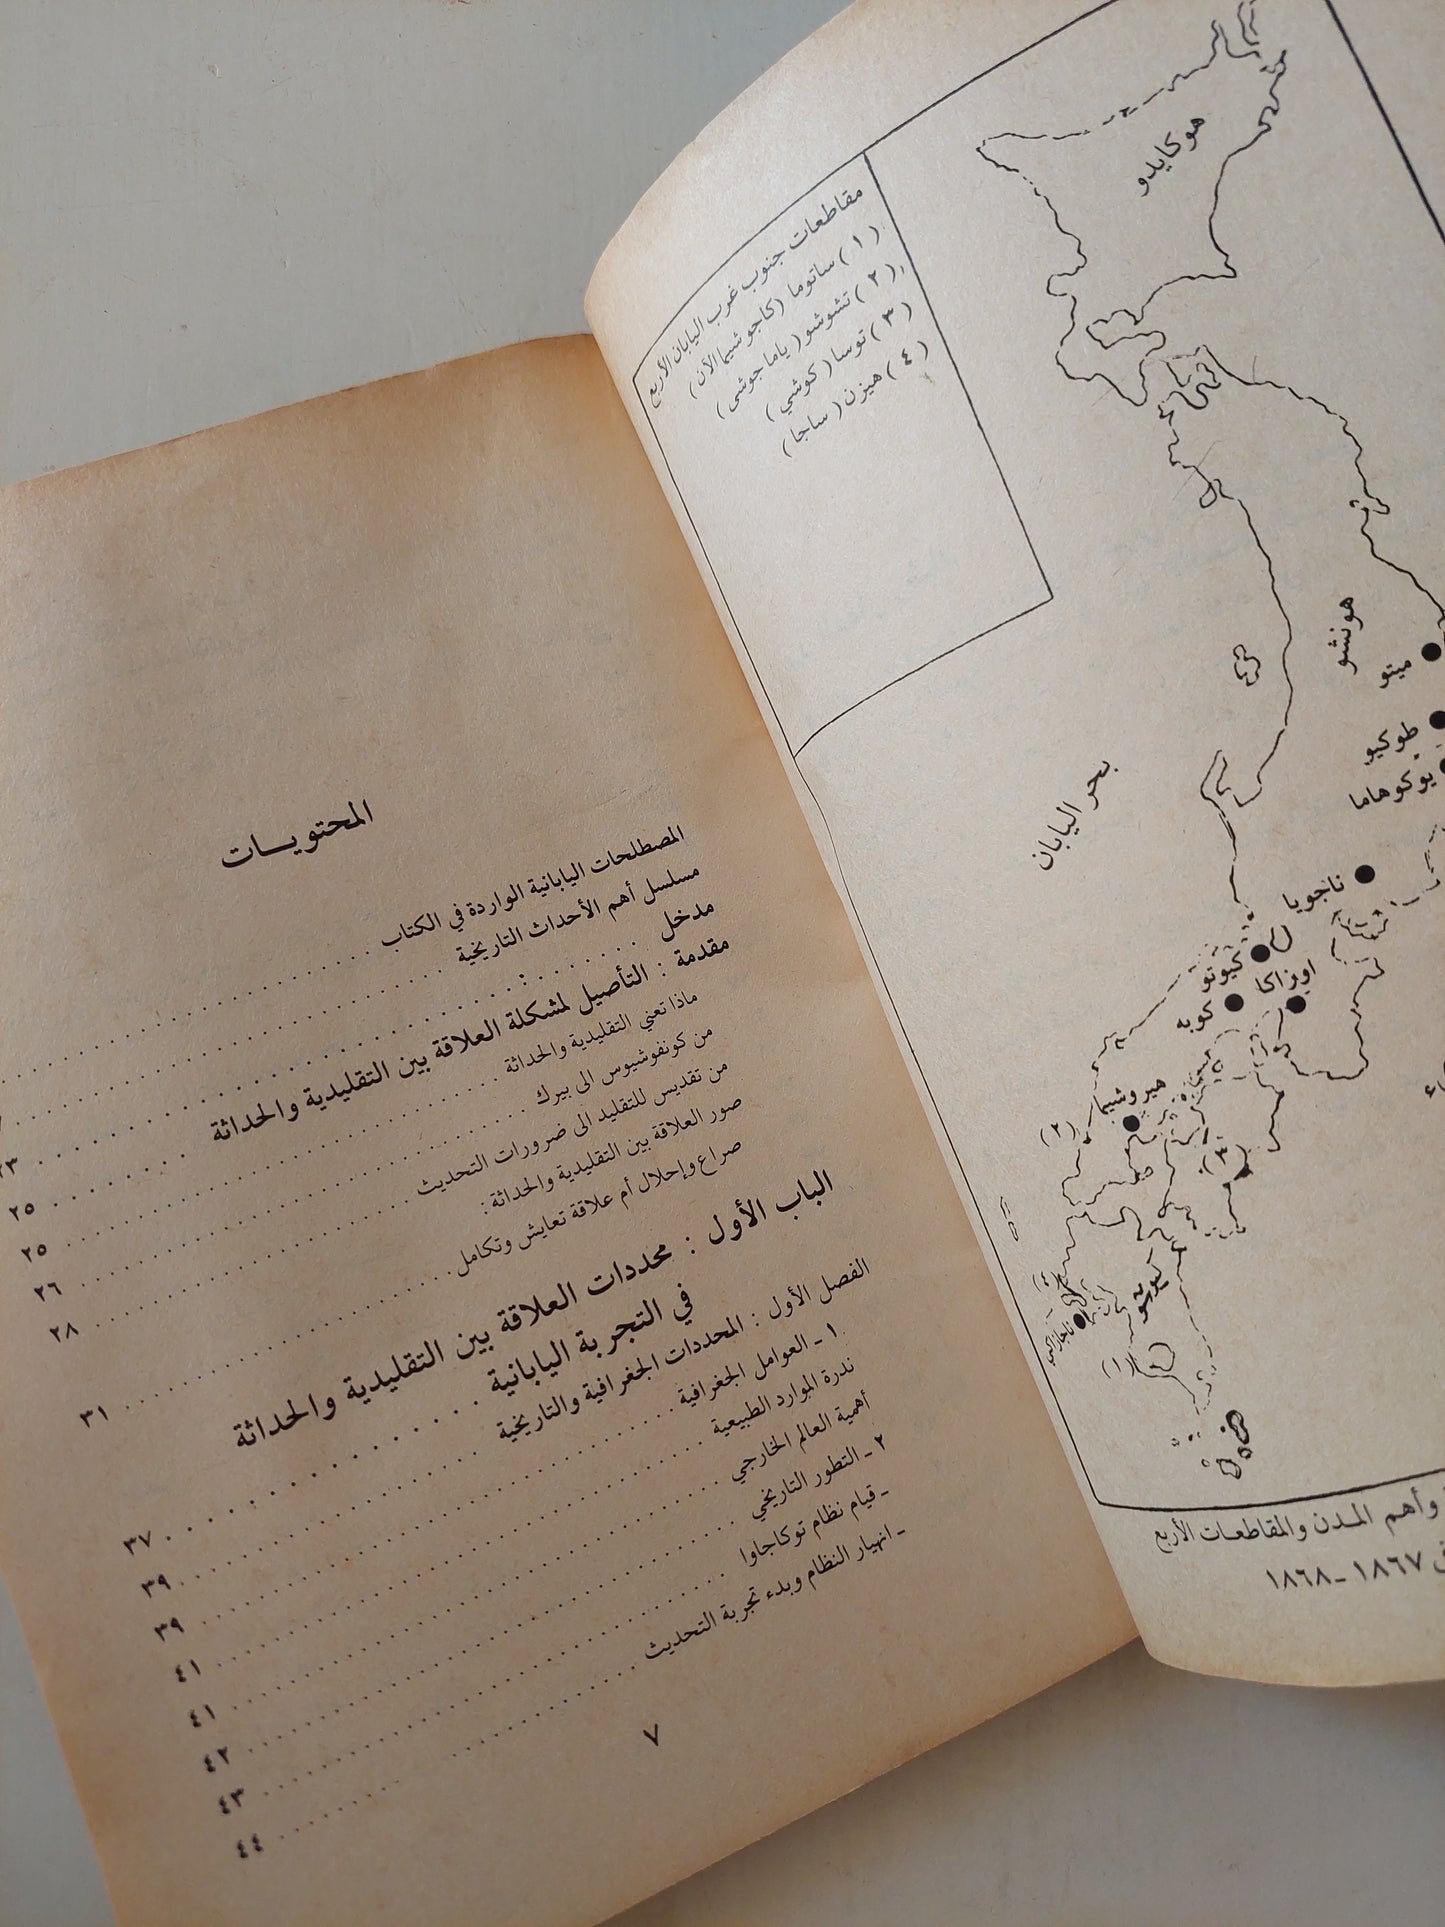 مقاطعات جنوب غرب اليابان الأربع
( ١ ) ساتوما ( كاجوشيما الآن )
( ٢ ) تشوشو ( ياماجوشى )
( ٣ ) توسا ( كوشي )
( ٤ ) هيزن ( ساجا )
هوكايدو
هونشو
ميتو
طوكيو
يوكوهاما
بحر اليابان
ناجويا
كيوتو
اوزاكا
كوبه
هيروشيما
(٢)
(٣)
(٤)
كيوشو
(١)
وأهم المـدن والمقاطعـات الأربع
١٨٦٧ ـ ١٨٦٨
المحتويـــات
المصطلحات اليابانية الواردة في الكتاب
مسلسل أهم الأحداث التاريخية
مدخل ٢٣
مقدمة : التأصيل لمشكلة العلاقة بين التقليدية والحداثة ٢٥
ماذا تعني التقليدية والحداثة ٢٥
من كونفوشيوس الى بيرك ٢٦
من تقديس للتقليد الى ضرورات التحديث ٢٨
صور العلاقة بين التقليدية والحداثة :
صراع وإحلال أم علاقة تعايش وتكامل ٣١
الباب الأول : محددات العلاقة بين التقليدية والحداثة
في التجربة اليابانية ٣٧
الفصل الأول : المحددات الجغرافية والتاريخية ٣٩
١ ـ العوامل الجغرافية ٣٩
ندرة الموارد الطبيعية ٤١
أهمية العالم الخارجي ٤١
٢ ـ التطور التاريخي ٤٢
ـ قيام نظام توكاجاوا ٤٣
ـ انهيار النظام وبدء تجربة التحديث ٤٤
٧